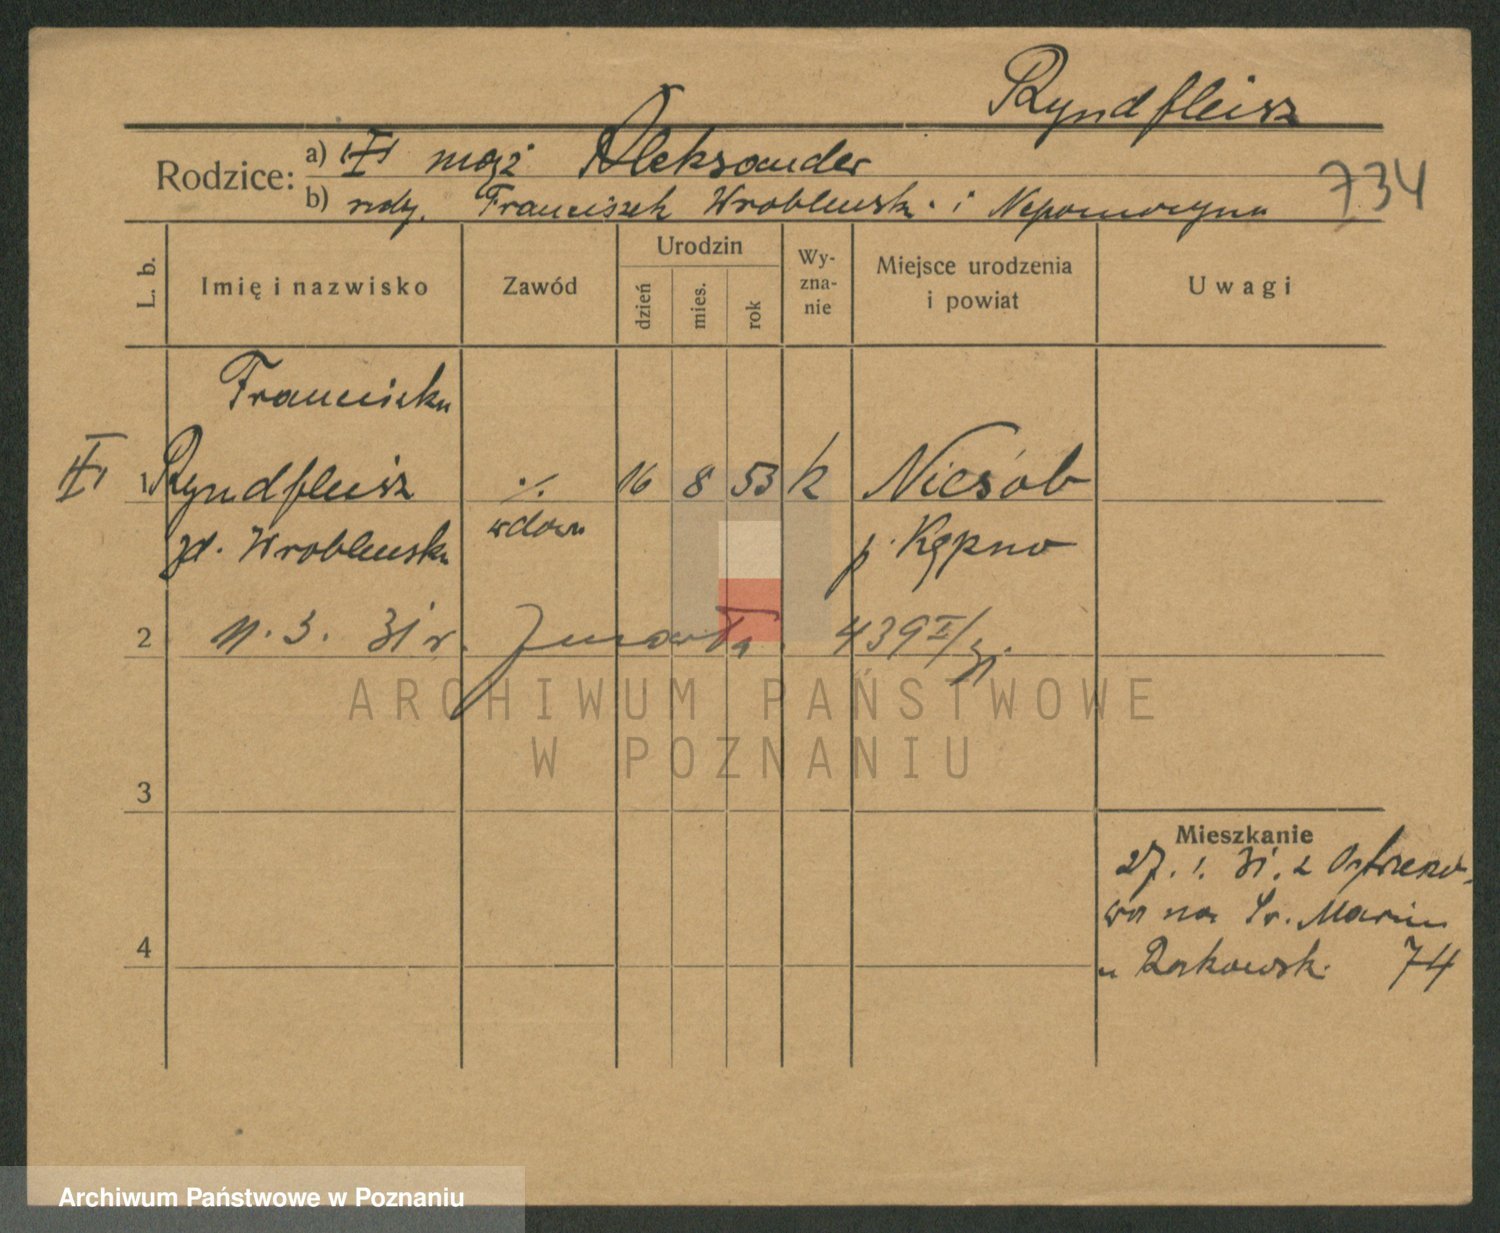 Ryndfleisz
Rodzice: a) III mąż Aleksander
b) rodz. Franciszek Wroblewsk. i Nepomocyna
734
L. b. Imię i nazwisko Zawód Urodzin dzień mies. rok Wy-zna-nie Miejsce urodzenia i powiat Uwagi
Franciszka
III 1 Ryndfleisz ./. 16 8 53 k Niesób
zd. Wroblewska wdowa p. Kępno
2 11. 3. 31 r. Zmarła. 439 I/31.
ARCHIWUM PAŃSTWOWE
W POZNANIU
3
Mieszkanie
27. 1. 31. z Ostrzeszo-
wa na Św. Marcin
4 u Borkowsk. 74
Archiwum Państwowe w Poznaniu